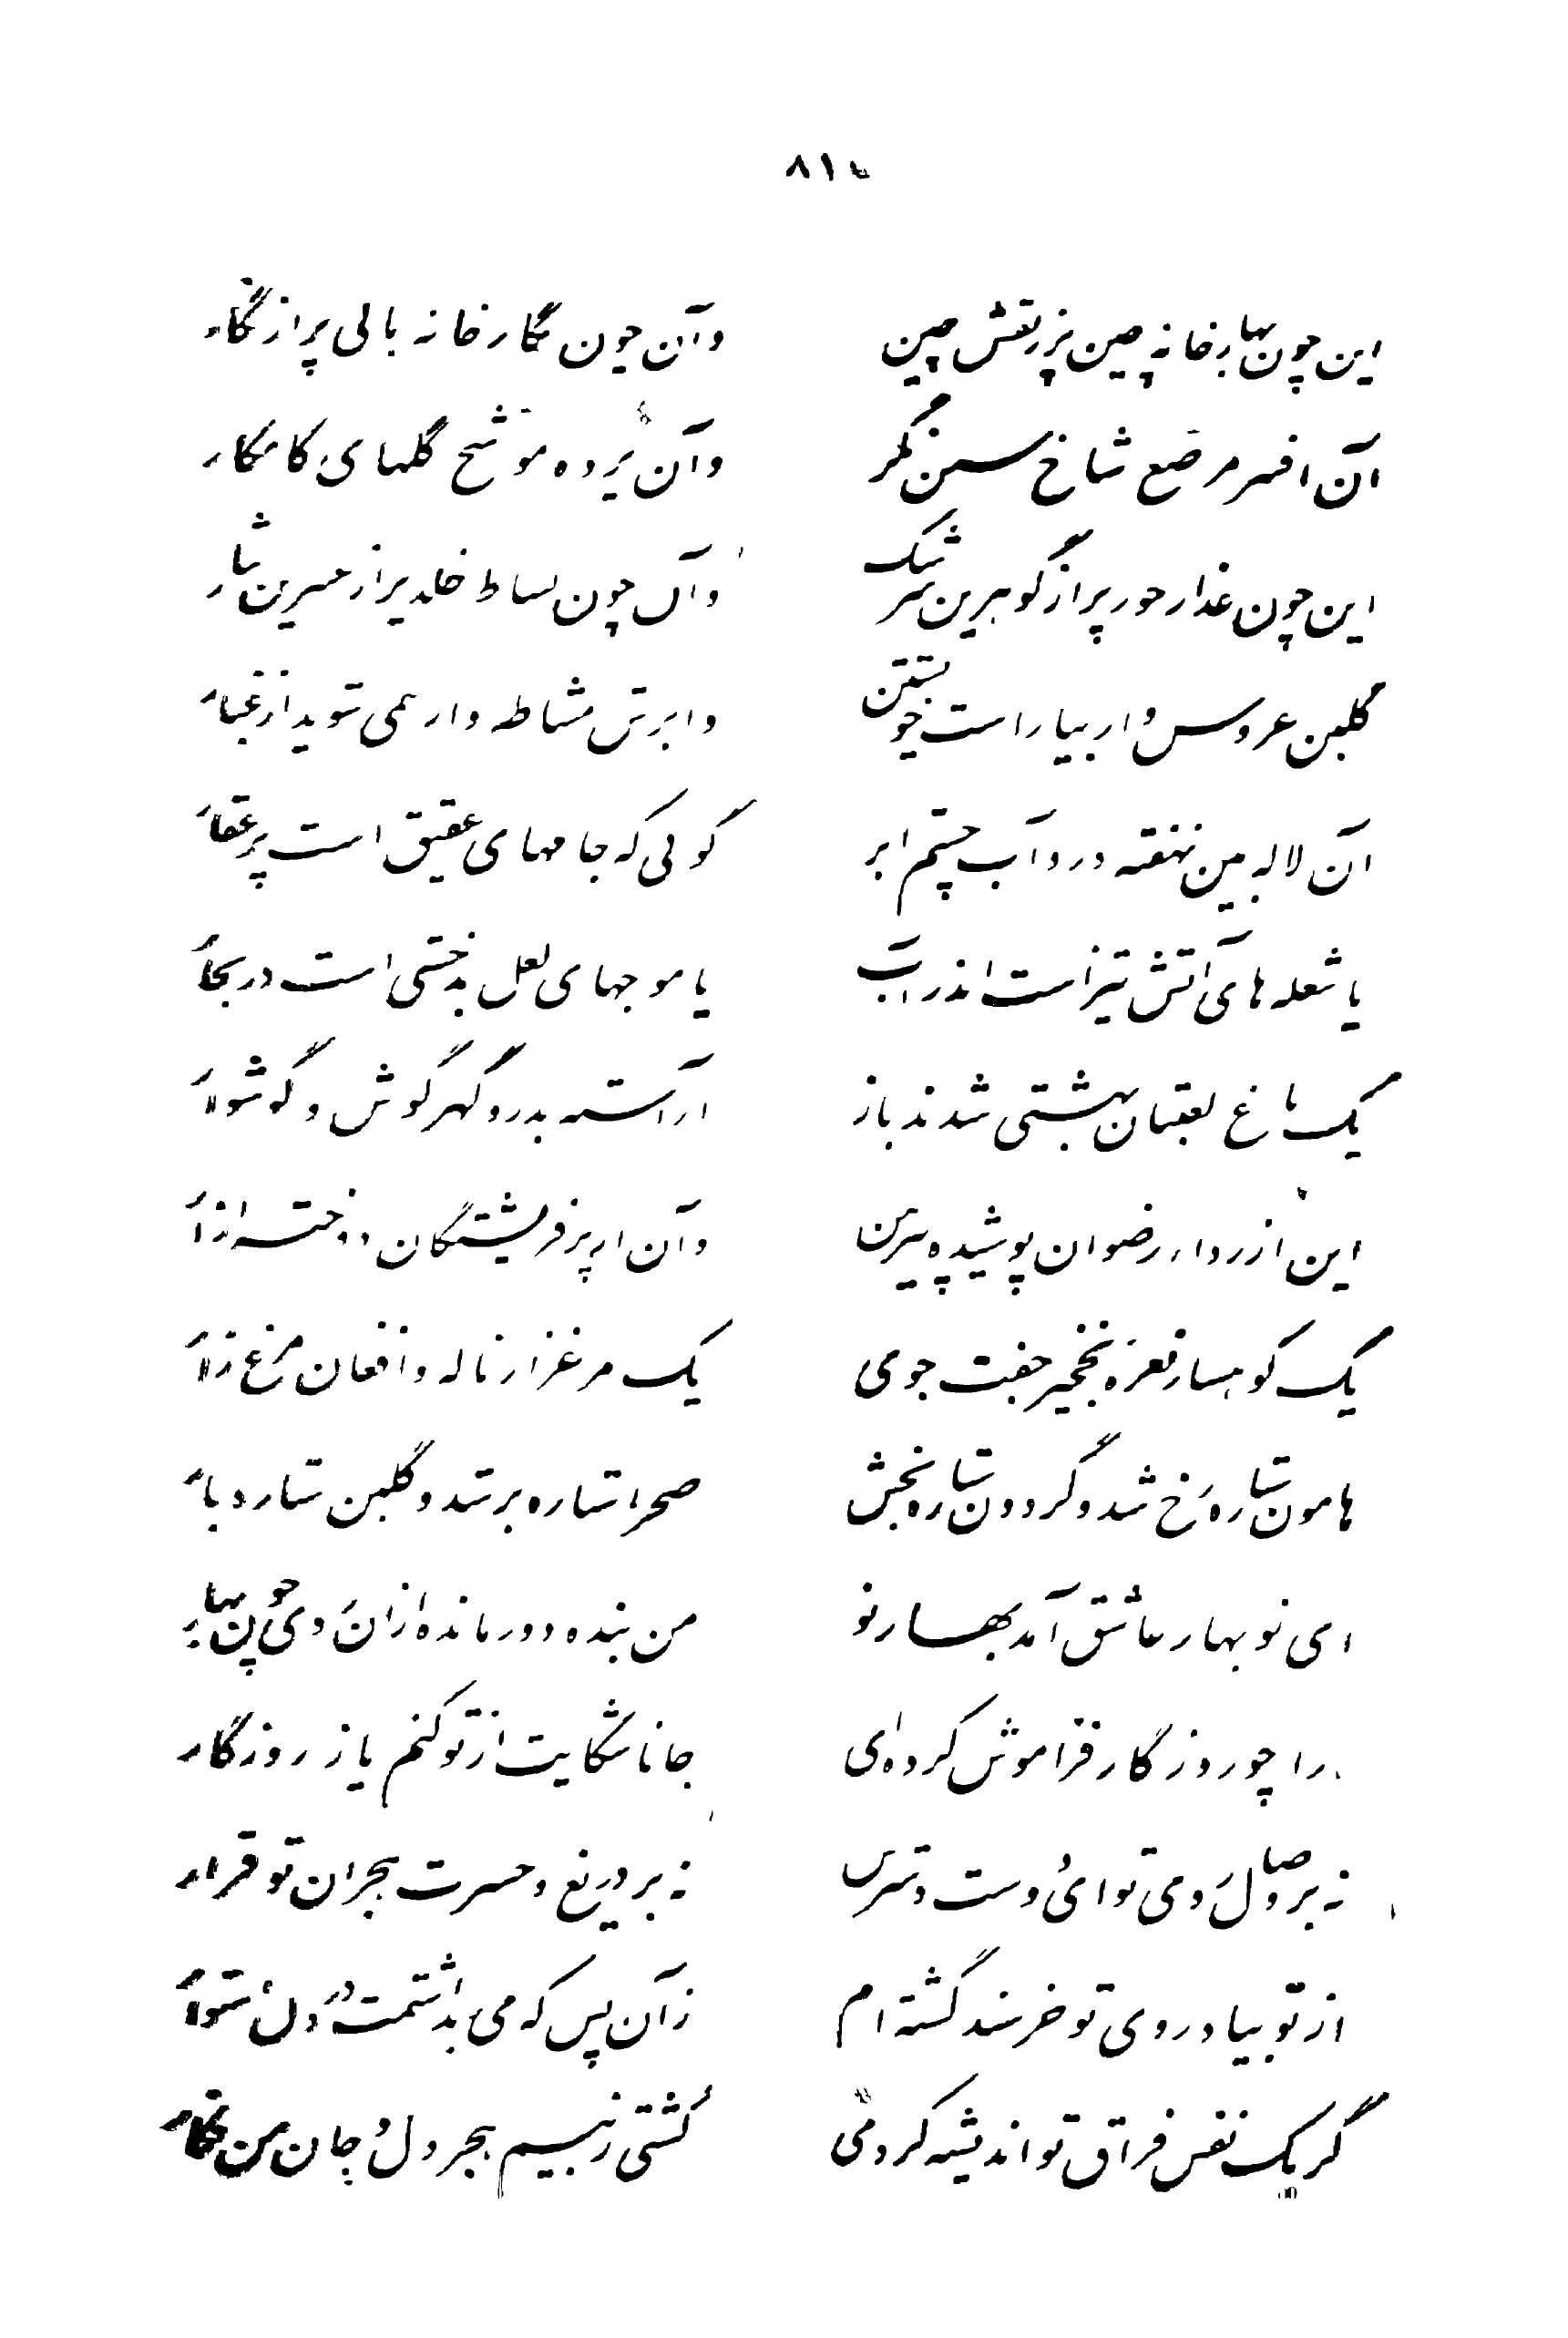 این چون بهارخانه چین پر ز نقش چین
وآن چون نگارخانه مانی پر از نگار
آن افسر مرصع شاخ سمن نگر
وآن پرده موشح گلهای کامکار
این چون عذار حور پر از گوهرین سرشک
وآن چون بساط خلد پر از عنبرین نثار
گلبن عروس وار بیاراست خویشتن
وابرش مشاطه وار همی شوید از غبار
آن لاله بین نهفته درو آب چشم ابر
گوئی که جامهای عقیق است پر عقار
یا شعله های آتش تیز است اندر آب
یا موجهای لعل بدخشی است در بحار
یک باغ لعبتان بهشتی شدند باز
آراسته بدر و گهر گوش و گوشوار
این از رداء رضوان پوشیده پیرهن
وآن از پر فریشتگان دوخته ازار
یک کوهسار نعره نخجیر جفت جوی
یک مرغزار ناله و افغان مرغ زار
هامون ستاره رخ شد و گردون ستاره بخش
صحرا ستاره بر شد و گلبن ستاره بار
ای نوبهار عاشق آمد بهار نو
من بنده دور مانده از آن روی چون بهار
را چو روزگار فراموش کرده ای
جانا شکایت از تو کنم یا ز روزگار
نه بر وصال روی تو ای دوست دسترس
نه بر دریغ و حسرت هجران تو قرار
از تو بیاد روی تو خرسند گشته ام
زآن پس که می بداشتمت در دل استوار
گر یک نفس فراق تو اندیشه کردمی
گشتی ز بیم هجر دل و جان من فگار